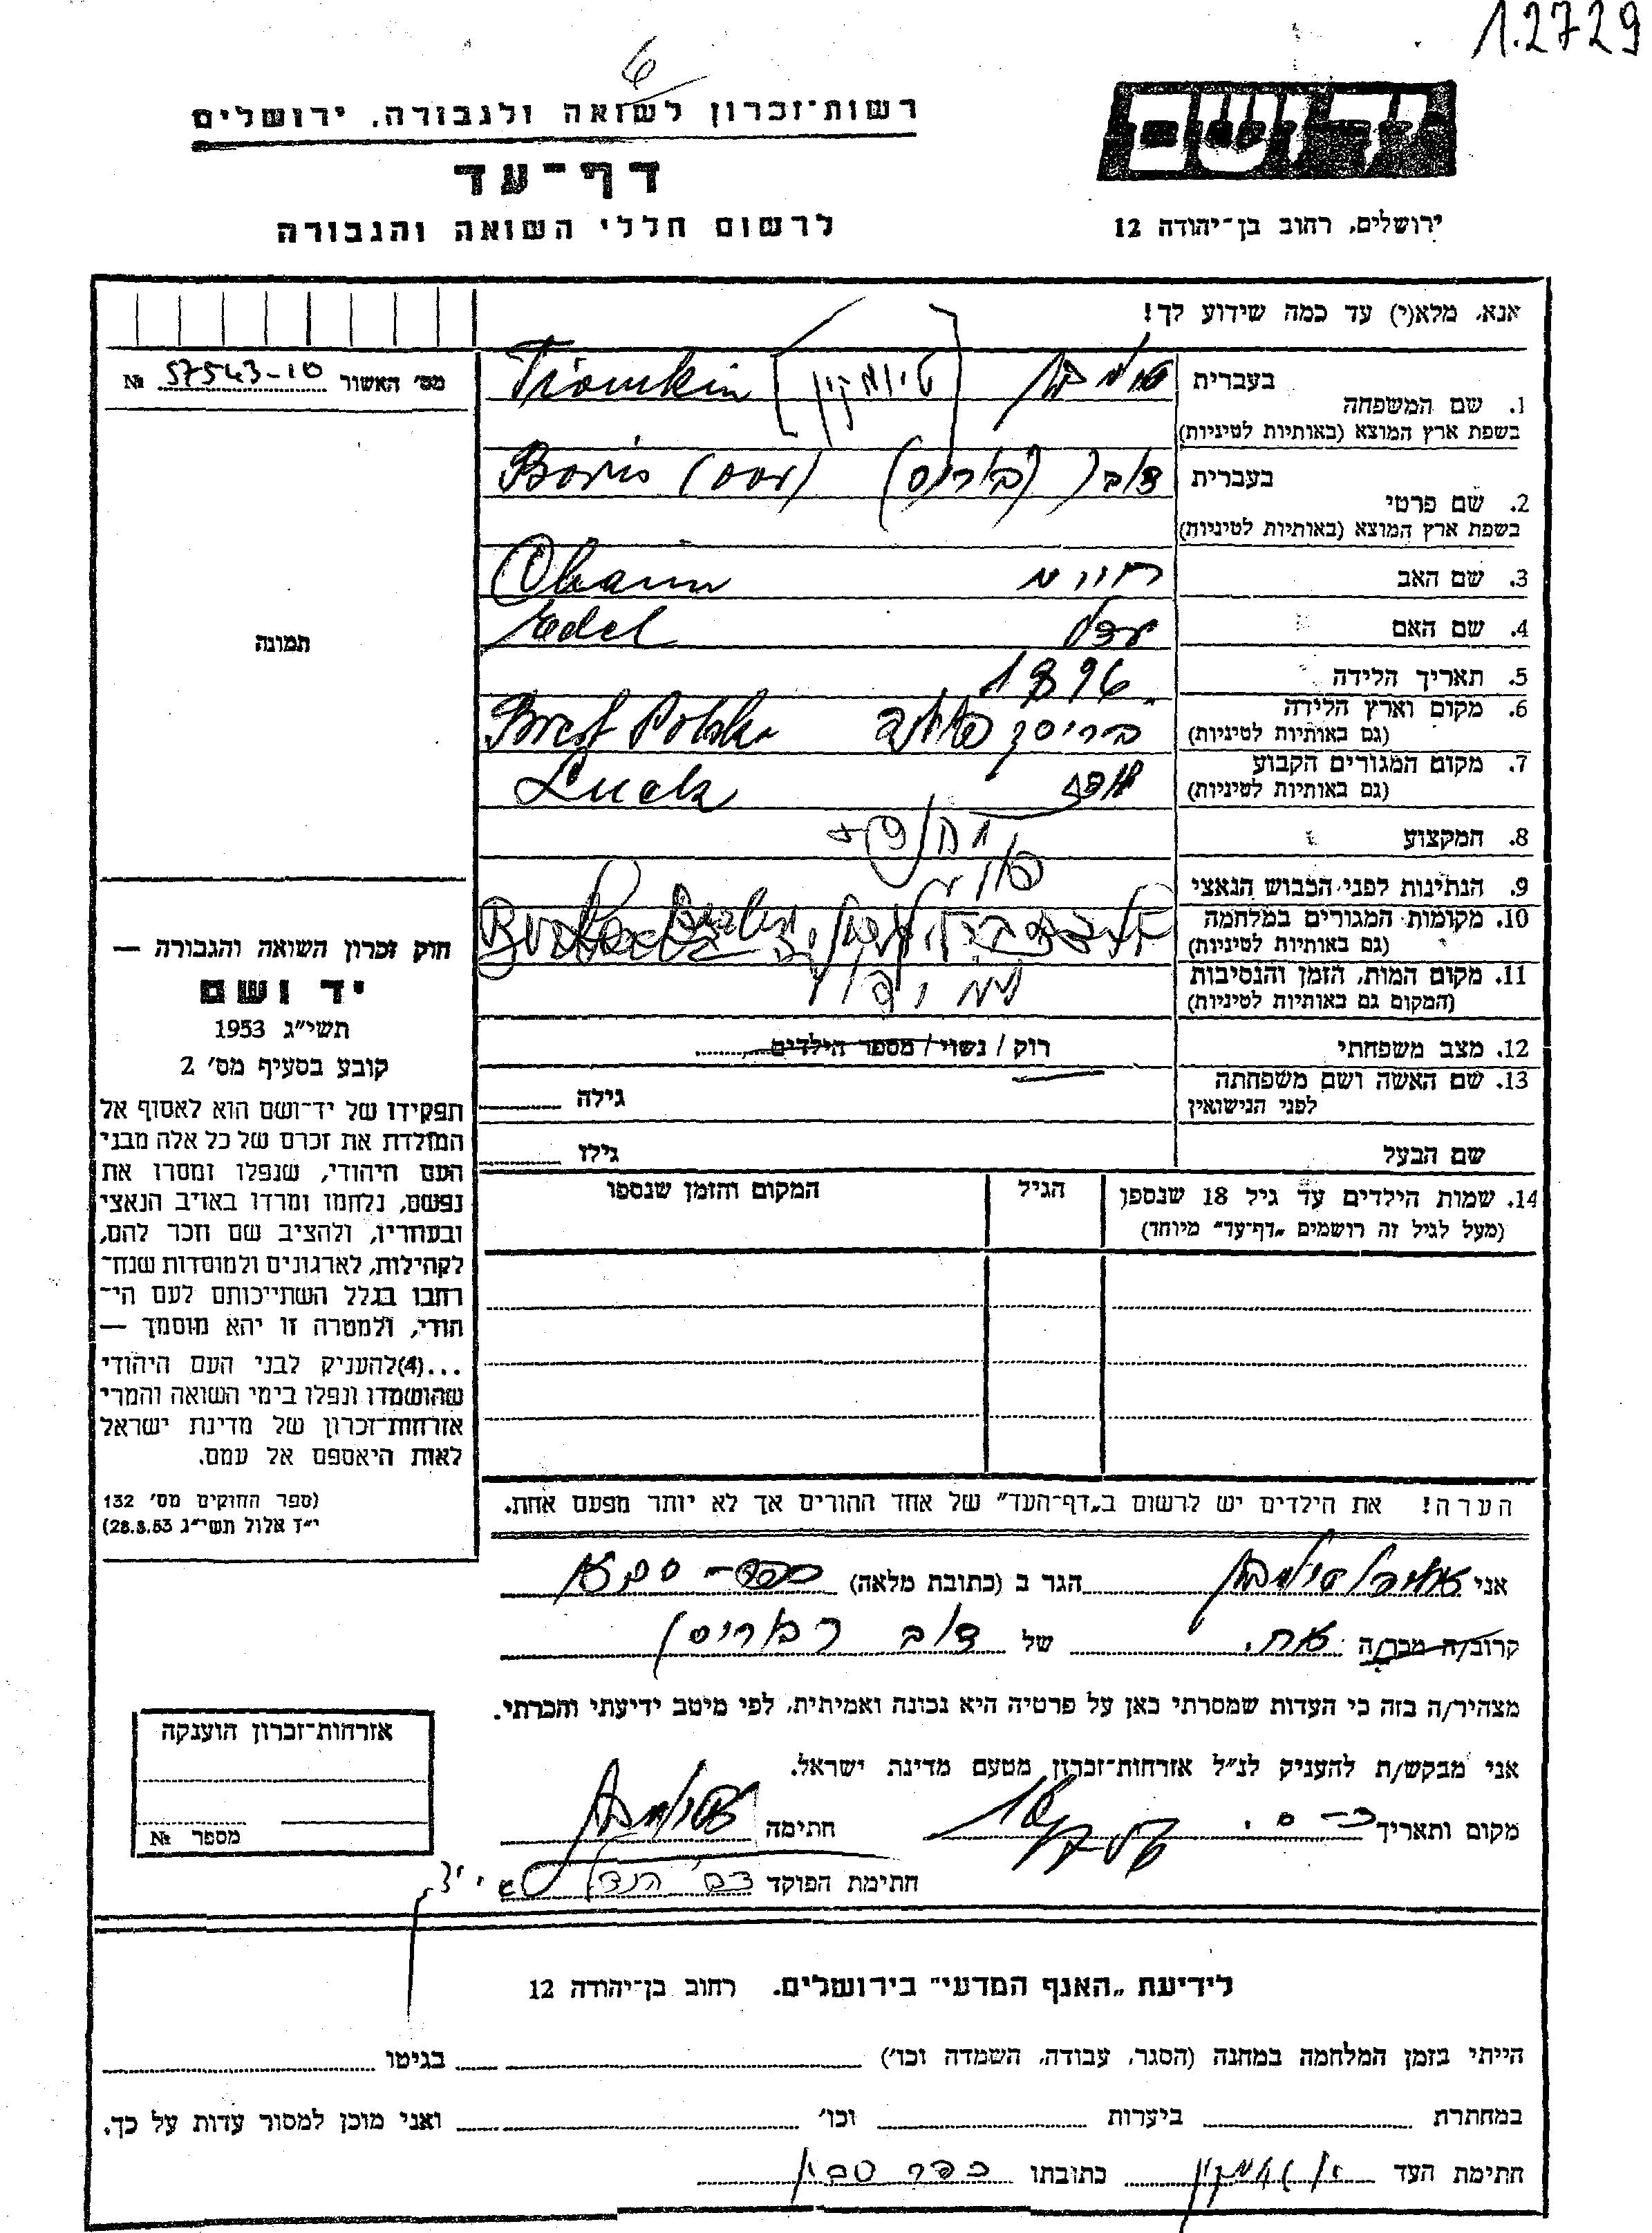 1.2729
6
רשות־זכרון לשואה ולגבורה, ירושלים
יד ושם
דף־עד
לרשום חללי השואה והגבורה
ירושלים, רחוב בן־יהודה 12
אנא, מלא(י) עד כמה שידוע לך!
מס׳ האשור 57543-10 №
תמונה
חוק זכרון השואה והגבורה —
יד ושם
תשי״ג 1953
קובע בסעיף מס׳ 2
תפקידו של יד־ושם הוא לאסוף אל
המולדת את זכרם של כל אלה מבני
העם היהודי, שנפלו ומסרו את
נפשם, נלחמו ומרדו באויב הנאצי
ובעוזריו, ולהציב שם וזכר להם,
לקהילות, לארגונים ולמוסדות שנח־
רבו בגלל השתייכותם לעם הי־
הודי, ולמטרה זו יהא מוסמך —
...(4)להעניק לבני העם היהודי
שהושמדו ונפלו בימי השואה והמרי
אזרחות־זכרון של מדינת ישראל
לאות היאספם אל עמם.
(ספר החוקים מס׳ 132
י״ז אלול תשי״ג 28.8.53)
1. שם המשפחה
בעברית [טיומקין] Tiomkin
בשפת ארץ המוצא (באותיות לטיניות)
2. שם פרטי
בעברית דוב (בוריס) Boris
בשפת ארץ המוצא (באותיות לטיניות)
3. שם האב חיים Chaim
4. שם האם Edel
5. תאריך הלידה 1896
6. מקום וארץ הלידה בריסק Brest Polska
(גם באותיות לטיניות)
7. מקום המגורים הקבוע Luck
(גם באותיות לטיניות)
8. המקצוע
9. הנתינות לפני הכבוש הנאצי
10. מקומות המגורים במלחמה
(גם באותיות לטיניות)
11. מקום המות, הזמן והנסיבות
(המקום גם באותיות לטיניות)
12. מצב משפחתי רוק / נשוי / מספר הילדים
13. שם האשה ושם משפחתה
לפני הנישואין גילה
שם הבעל גילו
14. שמות הילדים עד גיל 18 שנספו הגיל המקום והזמן שנספו
(מעל לגיל זה רושמים „דף־עד״ מיוחד)
הערה! את הילדים יש לרשום ב„דף־העד״ של אחד ההורים אך לא יותר מפעם אחת.
אני הגר ב (כתובת מלאה)
קרוב/ה מכר/ה של דוב
מצהיר/ה בזה כי העדות שמסרתי כאן על פרטיה היא נכונה ואמיתית, לפי מיטב ידיעתי והכרתי.
אני מבקש/ת להעניק לנ״ל אזרחות־זכרון מטעם מדינת ישראל.
מקום ותאריך חתימה
חתימת הפוקד
אזרחות־זכרון הוענקה
מספר №
לידיעת „האגף המדעי״ בירושלים, רחוב בן־יהודה 12
הייתי בזמן המלחמה במחנה (הסגר, עבודה, השמדה וכו׳) בגיטו
במחתרת ביערות וכו׳ ואני מוכן למסור עדות על כך.
חתימת העד כתובתו כפר סבא